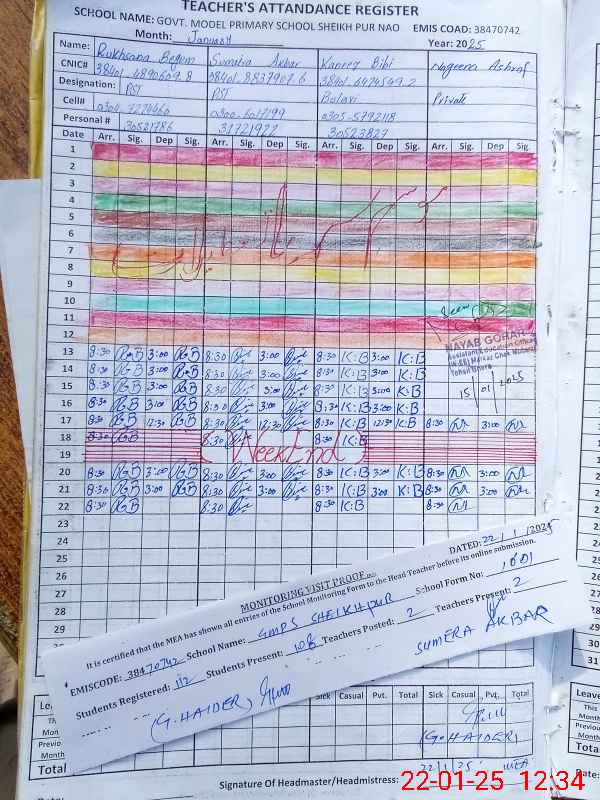 TEACHER'S ATTANDANCE REGISTER
SCHOOL NAME: GOVT. MODEL PRIMARY SCHOOL SHEIKH PUR NAO EMIS COAD: 38470742
Month: January Year: 2025
Name: Rukhsana Begum Sumaira Akbar Kaneez Bibi Nageena Ashraf
CNIC#
Designation: PST PST Private
Cell# 0305-5792118
Personal # 30521786 31721922 30523827
Date Arr. Sig. Dep Sig. Arr. Sig. Dep Sig. Arr. Sig. Dep Sig. Arr. Sig. Dep Sig
1
2
3
4
5
6
7
8
9
10
11
12
Seen
NAYAB GOHAR
Assistant Education Officer
15 01 2025
13 8:30 RGB 3:00 RGB 8:30 3:00 8:30 K:B 3:00 K:B
14 8:30 RGB 3:00 RGB 8:30 3:00 8:30 K:B 3:00 K:B
15 8:30 RGB 3:00 RGB 8:30 3:00 8:30 K:B 3:00 K:B
16 8:30 RGB 3:00 RGB 8:30 3:00 8:30 K:B 3:00 K:B
17 8:30 RGB 12:30 RGB 8:30 12:30 8:30 K:B 12:30 K:B 8:30 3:00
18 8:30 RGB 8:30 8:30 K:B
WeekEnd
19
20 8:30 RGB 3:00 RGB 8:30 3:00 8:30 K:B 3:00 K:B 8:30 3:00
21 8:30 RGB 3:00 RGB 8:30 3:00 8:30 K:B 3:00 K:B 8:30 3:00
22 8:30 RGB 8:30 8:30 K:B 8:30
23
24
25
26
27
28
29
30
31
MONITORING VISIT PROOF DATED: 22/1/2025
It is certified that the MEA has shown all entries of the School Monitoring Form to the Head Teacher before its online submission.
EMISCODE: 38470742 School Name: GMPS SHEIKHPUR School Form No: 1001
Students Registered: 112 Students Present: 108 Teachers Posted: 2 Teachers Present: 2
(G. HAIDER) SUMERA AKBAR
Sick Casual Pvt. Total Sick Casual Pvt. Total
Leave
This
Month
Previo
Month
Total
(G. HAIDER)
22/1/25 MEA
Signature Of Headmaster/Headmistress:
22-01-25 12:34